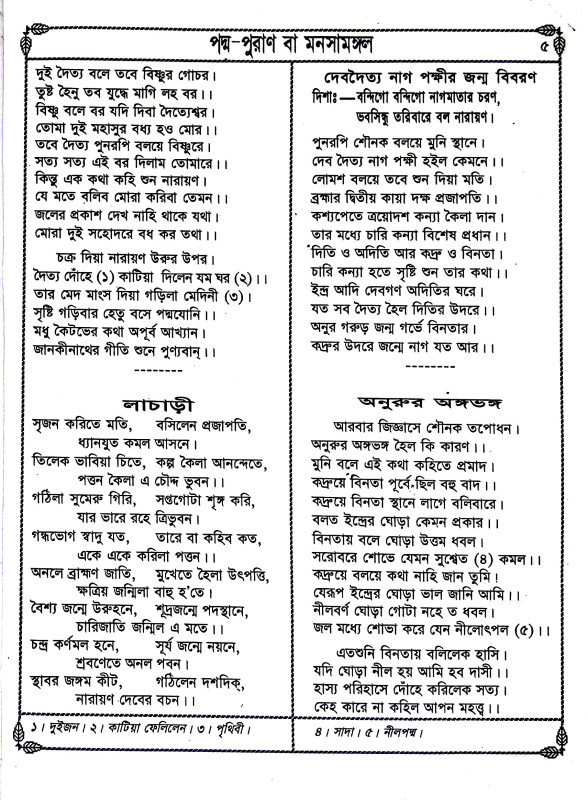 পদ্ম-পুরাণ বা মনসামঙ্গল
৫
দুই দৈত্য বলে তবে বিষ্ণুর গোচর।
তুষ্ট হৈনু তব যুদ্ধে মাগি লহ বর।।
বিষ্ণু বলে বর যদি দিবা দৈত্যেশ্বর।
তোমা দুই মহাসুর বধ্য হও মোর।।
তবে দৈত্য পুনরপি বলেয়ে বিষ্ণুরে।
সত্য সত্য এই বর দিলাম তোমারে।।
কিন্তু এক কথা কহি শুন নারায়ণ।
যে মতে বলিব মোরা করিবা তেমন।।
জলের প্রকাশ দেখ নাহি থাকে যথা।
মোরা দুই সহোদরে বধ কর তথা।।
চক্র দিয়া নারায়ণ উরুর উপর।
দৈত্য দোঁহে (১) কাটিয়া দিলেন যম ঘর (২)।।
তার মেদ মাংস দিয়া গড়িলা মেদিনী (৩)।
সৃষ্টি গড়িবার হেতু বসে পদ্মযোনি।।
মধু কৈটভের কথা অপূর্ব আখ্যান।
জানকীনাথের গীতি শুনে পুণ্যবান্।।
--------
লাচাড়ী
সৃজন করিতে মতি, বসিলেন প্রজাপতি,
ধ্যানযুত কমল আসনে।
তিলেক ভাবিয়া চিতে, কল্প কৈলা আনন্দেতে,
পত্তন কৈলা এ চৌদ্দ ভুবন।।
গঠিলা সুমেরু গিরি, সপ্তগোটা শৃঙ্গ করি,
যার ভারে রহে ত্রিভুবন।
গন্ধভোগ স্বাদু যত, তারে বা কহিব কত,
একে একে করিলা পত্তন।।
অনলে ব্রাহ্মণ জাতি, মুখেতে হৈলা উৎপত্তি,
ক্ষত্রিয় জন্মিলা বাহু হ'তে।
বৈশ্য জন্মে উরুহনে, শূদ্রজন্মে পদস্থানে,
চারিজাতি জন্মিল এ মতে।।
চন্দ্র কর্ণমল হনে, সূর্য জন্মে নয়নে,
শ্রবণেতে অনল পবন।
স্থাবর জঙ্গম কীট, গঠিলেন দশদিক্,
নারায়ণ দেবের বচন।।
১। দুইজন। ২। কাটিয়া ফেলিলেন। ৩। পৃথিবী।
দেবদৈত্য নাগ পক্ষীর জন্ম বিবরণ
দিশাঃ—বন্দিগো বন্দিগো নাগমাতার চরণ,
ভবসিন্ধু তরিবারে বল নারায়ণ।
পুনরপি শৌনক বলয়ে মুনি স্থানে।
দেব দৈত্য নাগ পক্ষী হইল কেমনে।।
লোমশ বলয়ে তবে শুন দিয়া মতি।
ব্রহ্মার দ্বিতীয় কায়া দক্ষ প্রজাপতি।।
কশ্যপেতে ত্রয়োদশ কন্যা কৈলা দান।
তার মধ্যে চারি কন্যা বিশেষ প্রধান।।
দিতি ও অদিতি আর কদ্রু ও বিনতা।
চারি কন্যা হতে সৃষ্টি শুন তার কথা।।
ইন্দ্র আদি দেবগণ অদিতির ঘরে।
যত সব দৈত্য হৈল দিতির উদরে।।
অনুর গরুড় জন্ম গর্ভে বিনতার।
কদ্রুর উদরে জন্মে নাগ যত আর।।
--------
অনুরুর অঙ্গভঙ্গ
আরবার জিজ্ঞাসে শৌনক তপোধন।
অনুরুর অঙ্গভঙ্গ হৈল কি কারণ।।
মুনি বলে এই কথা কহিতে প্রমাদ।
কদ্রুয়ে বিনতা পূর্বে ছিল বহু বাদ।।
কদ্রুয়ে বিনতা স্থানে লাগে বলিবারে।
বলত ইন্দ্রের ঘোড়া কেমন প্রকার।।
বিনতায় বলে ঘোড়া উত্তম ধবল।
সরোবরে শোভে যেমন সুশ্বেত (৪) কমল।।
কদ্রুয়ে বলয়ে কথা নাহি জান তুমি।
যেরূপ ইন্দ্রের ঘোড়া ভাল জানি আমি।।
নীলবর্ণ ঘোড়া গোটা নহে ত ধবল।
জল মধ্যে শোভা করে যেন নীলোৎপল (৫)।।
এতশুনি বিনতায় বলিলেক হাসি।
যদি ঘোড়া নীল হয় আমি হব দাসী।।
হাস্য পরিহাসে দোঁহে করিলেক সত্য।
কেহ কারে না কহিল আপন মহত্ত্ব।।
৪। সাদা। ৫। নীলপদ্ম।